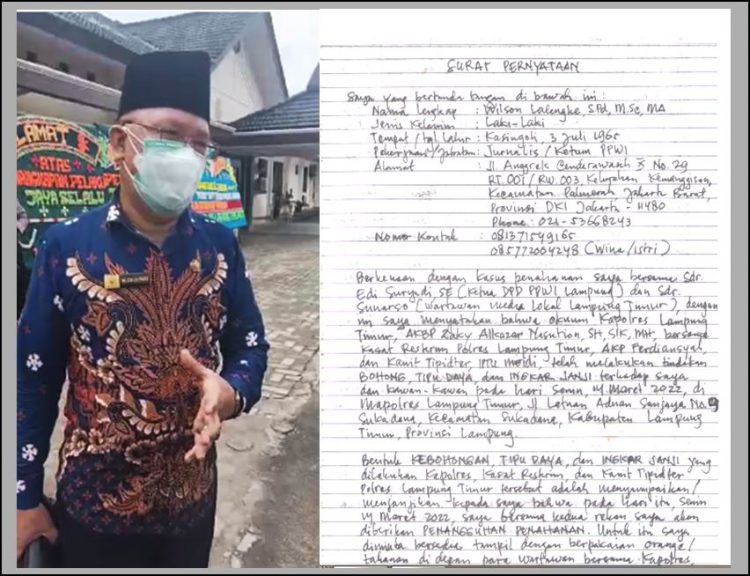 LAMAT &
ATAS
JAYA SELALU
SURAT PERNYATAAN
Saya yang bertanda tangan di bawah ini :
Nama Lengkap : Wilson Lalengke, S.Pd, M.Sc, MA
Jenis Kelamin : Laki-Laki
Tempat/tgl Lahir : Kasingoh, 3 Juli 1965
Pekerjaan/Jabatan : Jurnalis / Ketum PPWI
Alamat : Jl Anggrek Cenderawasih X No. 29
RT.001/RW.003, Kelurahan Kemanggisan,
Kecamatan Palmerah Jakarta Barat,
Provinsi DKI Jakarta - 11480
Phone : 021-53668243
Nomor Kontak : 081371549165
085772004248 (Wina/istri)
Berkenaan dengan kasus penahanan saya bersama Sdr.
Edi Suryadi, SE (Ketua DPD PPWI Lampung) dan Sdr.
Sunarso (wartawan media lokal Lampung Timur), dengan
ini saya menyatakan bahwa oknum Kapolres Lampung
Timur, AKBP Zaky Alkazar Nasution, SH, SIK, MH, bersama
Kasat Reskrim Polres Lampung Timur, AKP Ferdiansyah,
dan Kanit Tipidter, IPTU Meidi, telah melakukan tindakan
BOHONG, TIPU DAYA, dan INGKAR JANJI terhadap saya
dan kawan-kawan pada hari Senin, 14 Maret 2022, di
Mapolres Lampung Timur, Jl Letnan Adnan Sanjaya No. 9
Sukadana, Kecamatan Sukadana, Kabupaten Lampung
Timur, Provinsi Lampung.
Bentuk KEBOHONGAN, TIPU DAYA, dan INGKAR JANJI yang
dilakukan Kapolres, Kasat Reskrim, dan Kanit Tipidter
Polres Lampung Timur tersebut adalah menyampaikan/
menjanjikan kepada saya bahwa pada hari itu, Senin
14 Maret 2022, saya bersama kedua rekan saya, akan
diberikan PENANGGUHAN PENAHANAN. Untuk itu saya
diminta bersedia tampil dengan berpakaian orange/
tahanan di depan para wartawan bersama Kapolres,